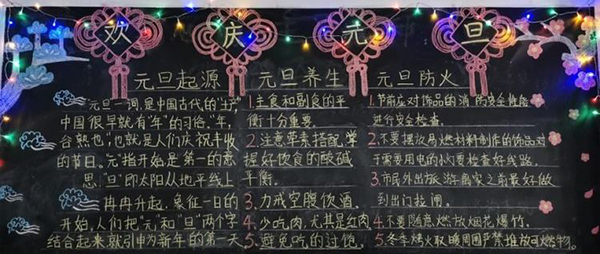 欢庆元旦
元旦起源
"元旦"一词,是中国古代的
中国很早就有"年"的习俗."年,
谷熟也",也就是人们庆祝丰收
的节日."元"指开始是第一的意
思."旦"即太阳从地平线上
冉冉升起,象征一日的
开始,人们把"元"和"旦"两个字
结合起来就引申为新年的第一天
元旦养生
1.主食和副食的平
衡十分重要.
2.注意荤素搭配,掌
握好饮食的酸碱
平衡.
3.力戒空腹饮酒.
4.少吃肉,尤其是红肉.
5.避免吃的过饱.
元旦防火
1.节前应对饰品的消防安全性能
进行安全检查.
2.不要摆放易燃材料制作的饰品对
于需要用电的小心要检查好线路.
3.市民外出旅游离家之前最好做
到出门拉闸.
4.不要随意燃放烟花爆竹.
5.冬季烤火取暖周围严禁堆放可燃物.